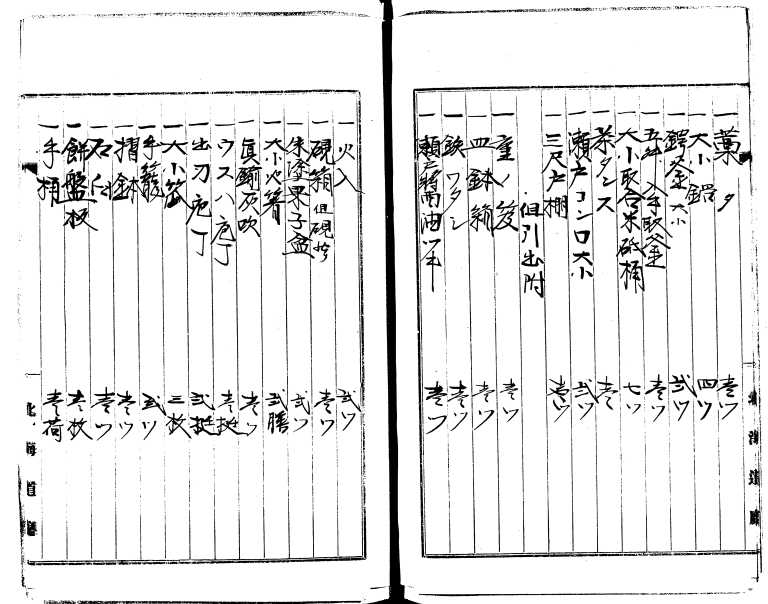 一藁タ 壱ツ
一大小鍔 四ツ
一鍔釜大小 弐ツ
一五升入手取釜 壱ツ
一大小取合米砥桶 七ツ
一茶タンス 壱ツ
一瀬戸コンロ大小 弐ツ
一三尺戸棚 壱ツ
但引出附
一重ノ 壱ツ
一皿鉢箱 壱ツ
一鉄ワタシ 壱ツ
一瀬戸醤油 壱ツ
北海道廳
一火入 弐ツ
一硯箱 但硯 壱ツ
一朱塗菓子盆 弐ツ
一大小火箸 弐膳
一真鍮灰吹 壱ツ
一ウスハ庖丁 壱挺
一出刃庖丁 弐挺
一大小笊 三枚
一手籠 弐ツ
一摺鉢 壱ツ
一石臼 壱ツ
一餅盤板 壱枚
一手桶 壱荷
北海道廳